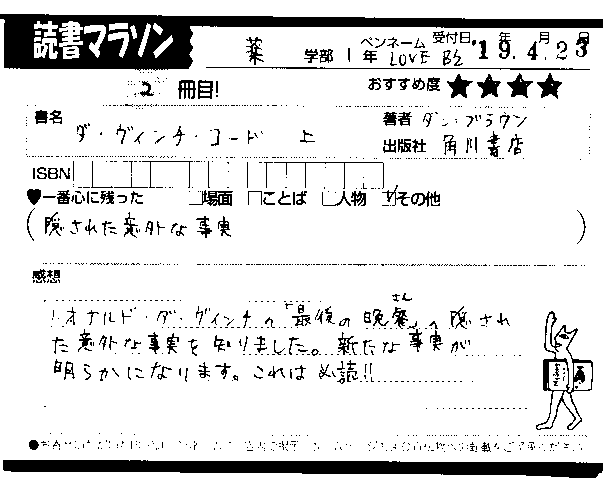 読書マラソン
薬 学部 1年 ペンネーム LOVE B'z 受付日 '19年.4月.23日
2 冊目! おすすめ度★★★★
書名 ダ・ヴィンチ・コード 上
著者 ダン・ブラウン
出版社 角川書店
ISBN
♥一番心に残った □場面 □ことば □人物 ☑その他
(隠された意外な事実)
感想
レオナルド・ダ・ヴィンチの「最後の晩餐」の隠され
さん
た意外な事実を知りました。新たな事実が
明らかになります。これは必読!!